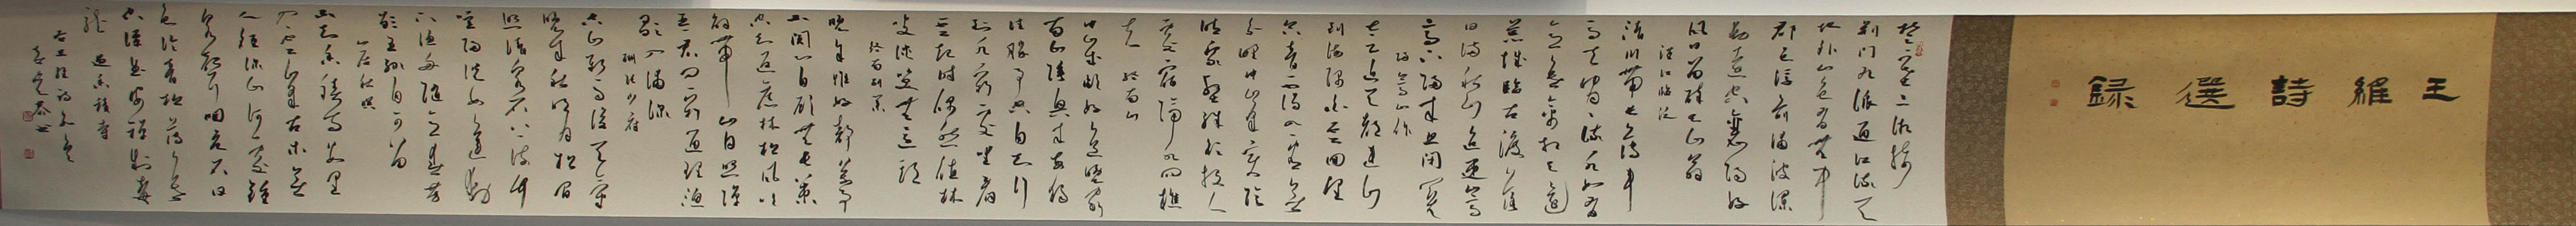 王維詩選録
楚塞三湘接
荊門九派通江流天
地外山色有無中
郡邑浮前浦波瀾
動遠空襄陽好
風日留醉與山翁
漢江臨泛
清川帶長薄車
馬去閑閑流水如有
意暮禽相與還
荒城臨古渡落
日滿秋山迢遞嵩
高下歸來且閉關
歸嵩山作
太乙近天都連山
到海隅白雲回望
合青靄入看無
分野中峰變陰
晴衆壑殊欲投人
處宿隔水問樵
夫 終南山
中歲頗好道晚家
南山陲興來每獨
往勝事空自知行
到水窮處坐看
雲起時偶然值林
叟談笑無還期
終南別業
晚年惟好靜萬事
不關心自顧無長策
空知返舊林松風吹
解帶山月照彈
琴君問窮通理漁
歌入浦深
酬張少府
空山新雨後天氣
晚來秋明月松間
照清泉石上流竹
喧歸浣女蓮動
下漁舟隨意春芳
歇王孫自可留
山居秋暝
不知香積寺數里
入雲峰古木無
人徑深山何處鐘
泉聲咽危石日
色冷青松薄暮
空潭曲安禪制毒
龍 過香積寺
右王維詩